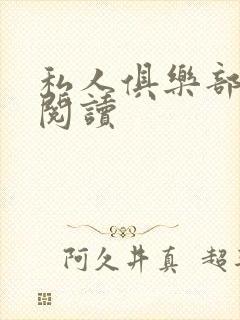 私人俱樂部
閱讀
阿久井真 超